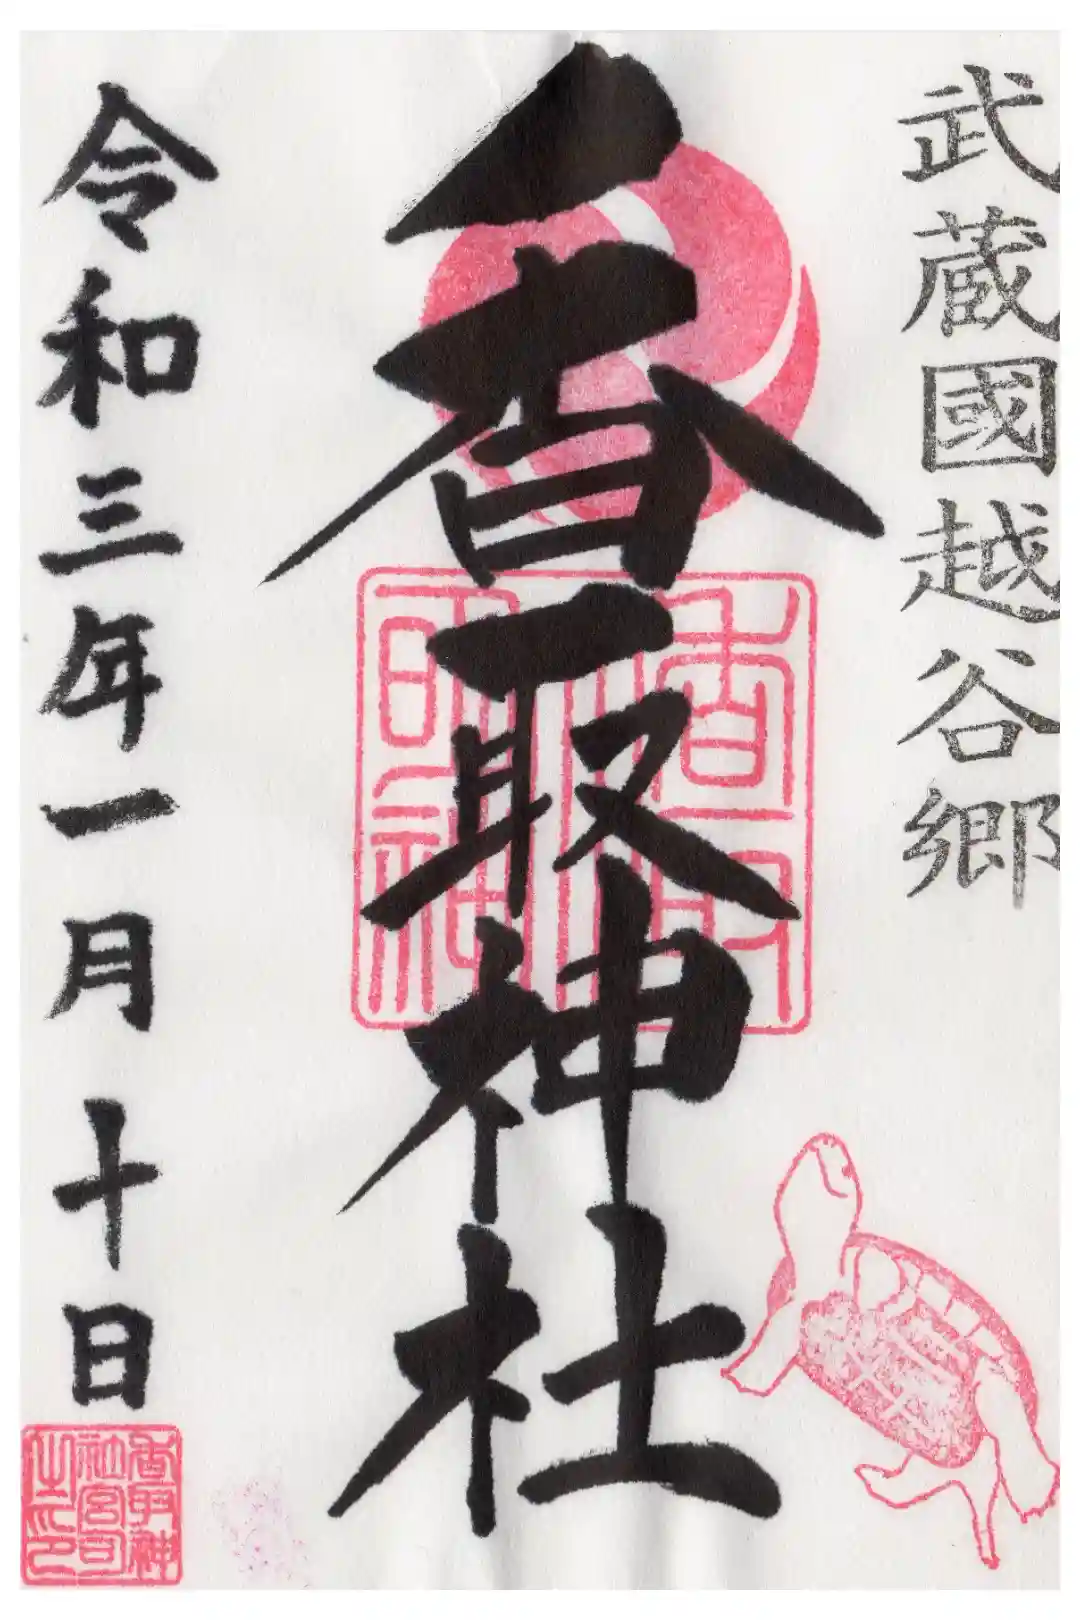 武蔵國越谷郷
香取神社
令和三年一月十日
香取神
社宮司
之印